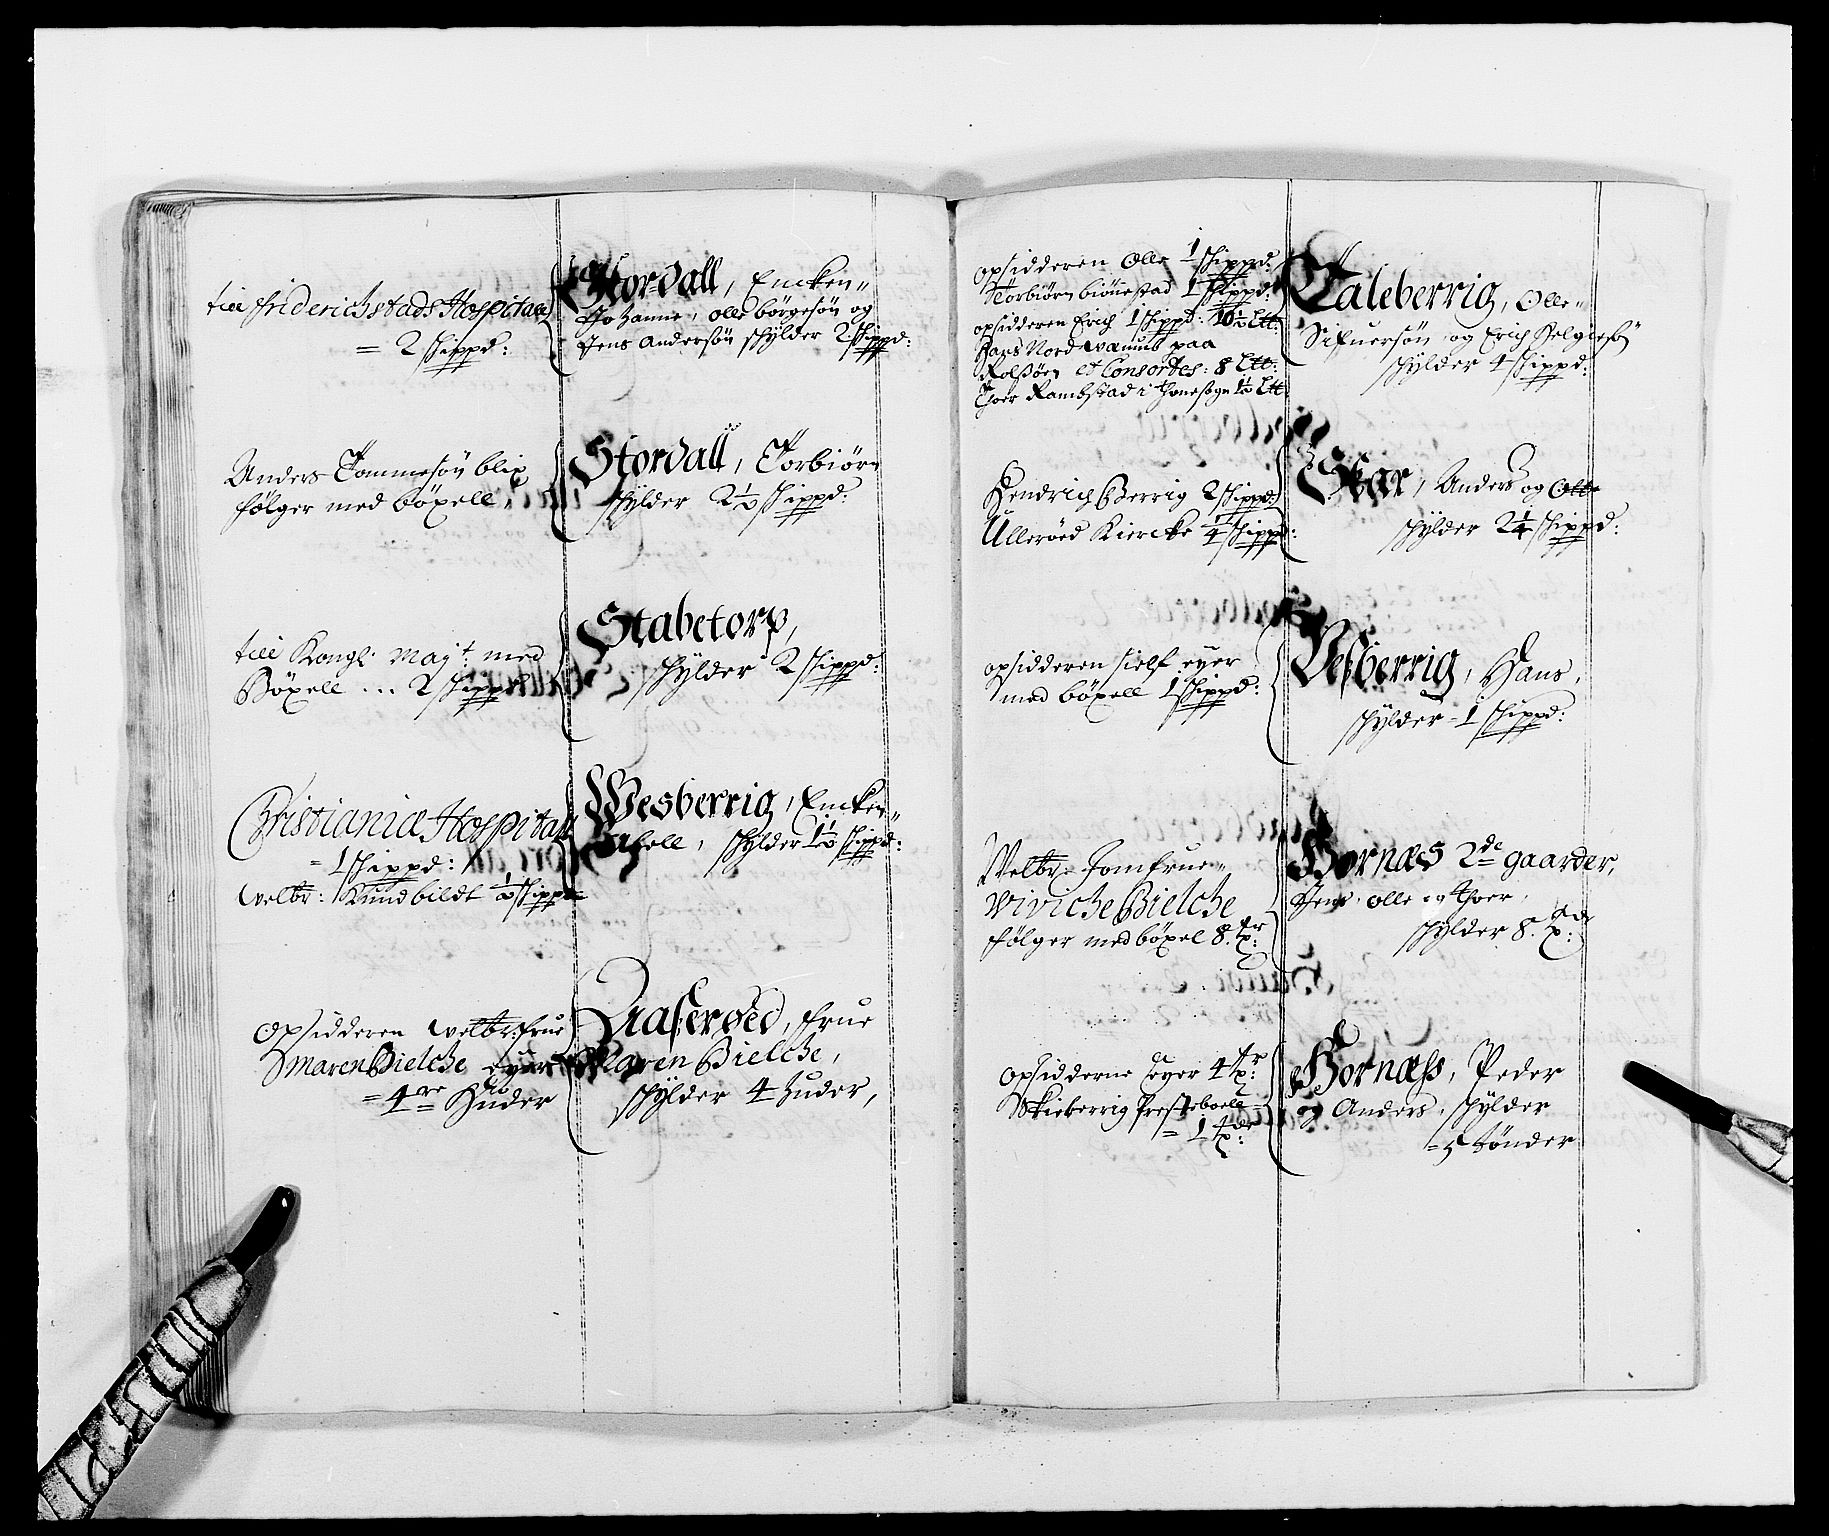 till Friderichstads Hospitaal
= 2 Schippd:
Stordall, Encken
Johanne, olle børgesøn og
Jens Andersøn schylder 2 Schippd:
Anders Tommesøn blix
følger med böxell,
Stordall, Torbiørn
schylder 2½ Schippd:
till Kongl: Mayt: med
Böxell ... 2 Schippd
Stabetorp,
schylder 2 Schippd:
Christianiæ Hospitall
= 1 Schippd:
welbr: Knud bildt ½ Schippd
Wesberrig, Encken
schylder 1½ Schippd:
Opsidderen welbr: frue
Maren Bielche eyer
= 4re Huder
Aaserøed, frue
Maren Bielche,
schylder 4 huder,
opsidderen Olle 1 Schippd:
Torbiørn biønestad 1 Schippd:
opsidderen Erich 1 Schippd: 10½ Ltt:
Hans Nord paa
Rolsøen et Consortes: 8 Ltt:
Thoer Rambstad i thunesogn 1½ Ltt
Taleberrig, Olle
Sifuersøn og Erich Helgiesøn
schylder 4 Schippd:
Hendrich Berrig 2 Schippd:
Ullerøed Kiercke ¼ Schippd:
Skar, Anders og Otte
schylder 2¼ Schippd:
opsidderen sielf eyer
med böxell 1 Schippd:
Vesberrig, Hans,
schylder - 1 Schippd:
Velbr: Jomfrue
Viviche Bielche
følger med böxel 8. tr:
Hornæs 2de gaarder,
Jens, olle og Thoer,
schylder 8. tr:
Opsidderne eyer 4 tr:
Skieberrig Presteboell =
= 1 tr:
Hornæss, Peder
og Anders, schylder
= 5 tønder